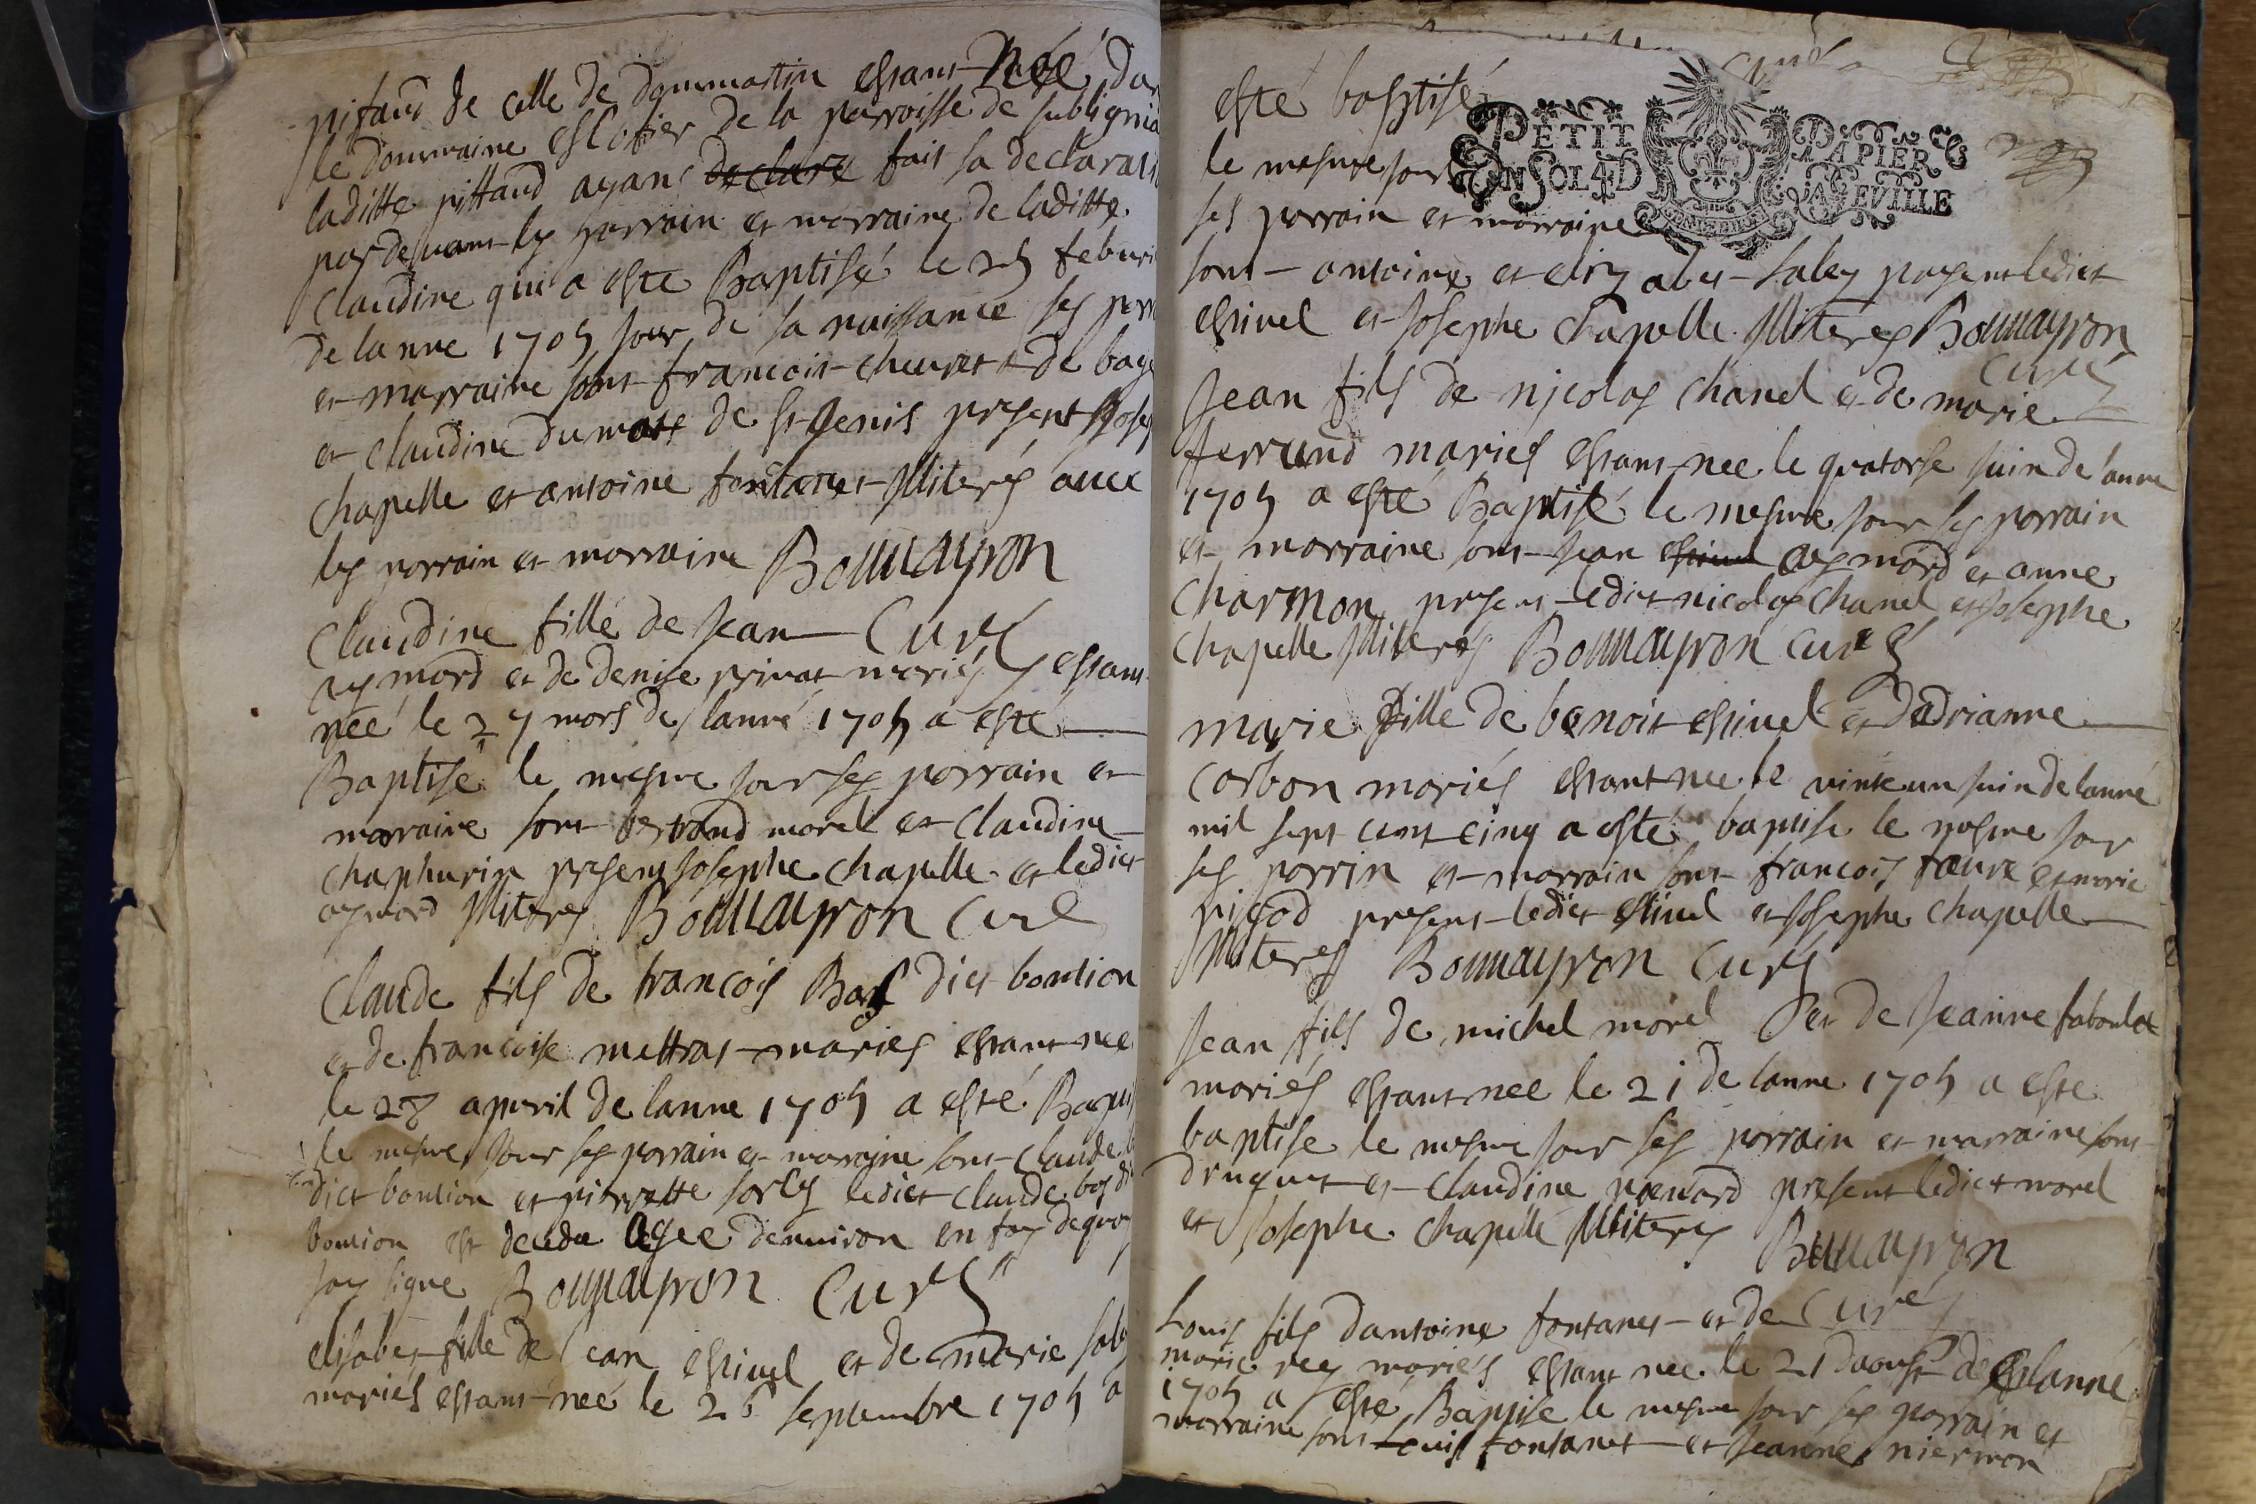 pitaud de celle de dommartin estant née da
le dommaine de la parroisse de subligni
laditte pittaud ayant declare fait sa declarati
pardevant les parrain et marraine de laditte
Claudine qui a este Baptisé le 25 feburi
de lanne 1705 jour de sa naissance ses parr
et marraine sont francois chevret de bage
et claudine dumots de st genis present Josep
chapelle et antoine fontanet Illiterés avec
les parrain et marraine Bonnayron
Claudine fille de Jean Curé
aymard et de denise privat mariés estant
néé le 27 mars de lanné 1705 a esté
Baptisé le mesme jour ses parrain et
marraine sont bertrand morel et Claudine
chaphurin present Josephe chapelle et ledict
aymard Illiteres Bonnayron Curé
Claude fils de francois Bos dict boution
et de francoise mettras mariés estant nee
le 28 apvril de lanne 1705 a esté Bapti
le mesme jour ses parrain et marraine sont Claude
dict boution et pierrette sorly ledict Claude bos di
boution est decedu Agee denviron en foy dequoy
jay signe Bonnayron Curé
elisabet fille de Jean estivel et de marie saly
mariés estant néé le 26 septembre 1705 a
esté baptisé
PETIT PAPIER
UN SOL 4 D LA FEUILLE
le mesme jour
ses parrain et marraine
sont antoine et elizabet saley present ledict
estivel et Josephe chapelle Illiteres Bonnayron
Curé
Jean fils de nicolas chanel et de marie
ferrand mariés estant nee le quatorse juin de lanne
1705 a esté Baptisé le mesme jour ses parrain
et marraine sont Jean estivel aymard et anne
Charmon present ledict nicolas chanel et Josephe
chapelle Illiterés Bonnayron Curé
marie fille de benoit estivel et dadrianne
Carbon mariés estant nee le vinte un juin de lanné
mil sept cent cinq a esté baptise le mesme jour
ses parrin et marrain sont francois faure et marie
pigod present ledict estivel et Josephe chapelle
Illiteres Bonnayron Curé
Jean fils de michel morel et de Jeanne saboulet
mariés estant nee le 21 de lanne 1705 a este
baptise le mesme jour ses parrain et marraine sont
druguet et claudine renard present ledict morel
et Josephe chapelle Illiteres Bonnayron
Louis fils dantoine fontanet et de Curé
marie rey mariés estant nee le 21 daoust de lanné
1705 a esté Baptise le mesme jour ses parrain et
marraine sont Louis fontanet et Jeanne niermon